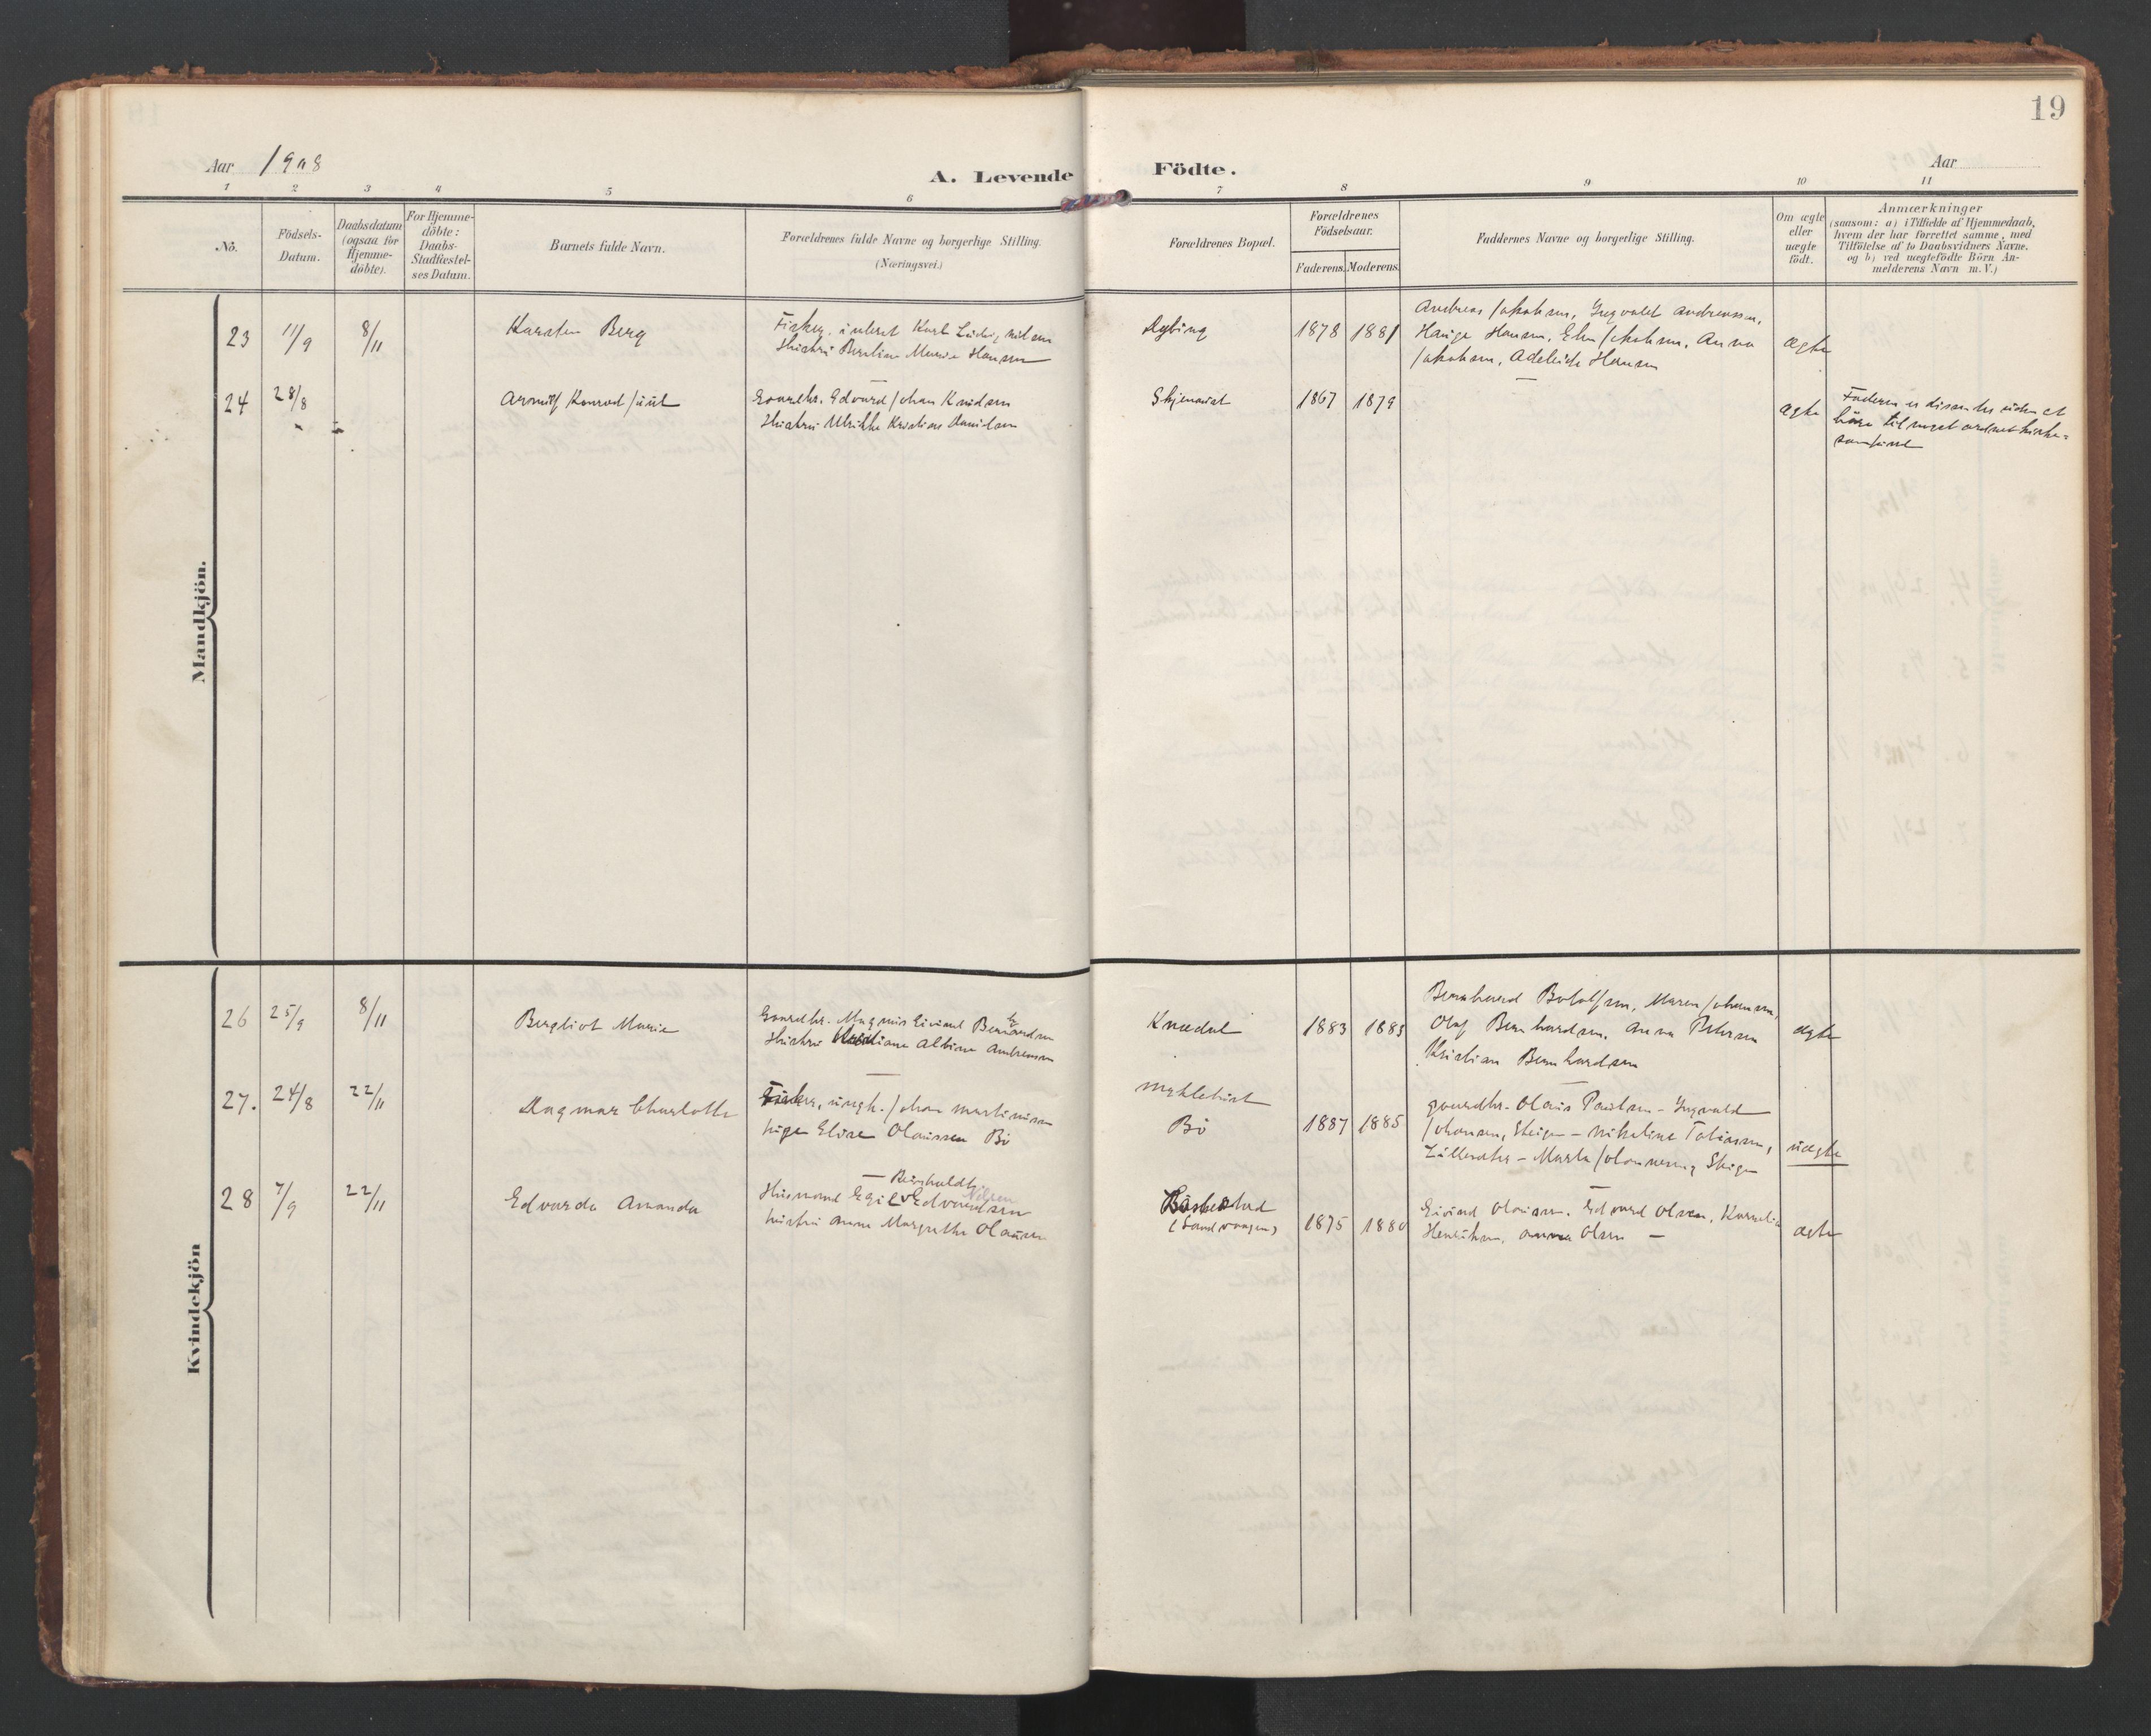 19
Aar 1908
A. Levende Födte.
Aar
1 2 3 4 5 6 7 8 9 10 11
Nö.
Födsels-
Datum.
Daabsdatum
(ogsaa for
Hjemme-
döbte).
For Hjemme-
döbte:
Daabs-
Stadfæstel-
ses Datum.
Barnets fulde Navn.
Forældrenes fulde Navne og borgerlige Stilling.
(Næringsvei.)
Forældrenes Bopæl.
Forældrenes
Födselsaar.
Faderens. Moderens.
Faddernes Navne og borgerlige Stilling.
Om ægte
eller
uægte
födt.
Anmærkninger
(saasom: a) i Tilfælde af Hjemmedaab,
hvem der har forrettet samme, med
Tilföielse af to Daabsvidners Navne.
og b) ved uægtefödte Börn An-
melderens Navn m. V.)
Mandkjön.
23 11/9 8/11 Karsten Berg
Fisker, Karl Ludvig Nilsen
Hustru Marie Hansen
1878 1881
Andreas Jakobsen, Ingvald Andreassen,
Hauge Hansen, Jakobsen, Anna
Jakobsen, Adeleide Hansen
ægte
24 28/8 - - Konrad Juul
Gaardbr. Edvard Johan Knudsen
Hustru Ulrikke Kristine Danielsen
1867 1879
ægte
Faderen er dissenter uden at
höre til noget ordnet kirke=
samfund
Kvindekjön
26 25/9 8/11 Bergliot Marie
Gaardbr. Magnus Eivind
Hustru Albine Andreassen
1883 1883
Bernhard Botolfsen, Maren Johansen,
Olaf Bernhardsen, Anna Petersen
Kristian Bernhardsen
ægte
27. 24/8 22/11 Dagmar Charlotte
Fisker, ungk. Johan Martinussen
Pige Elise Olaussen Bö
Myklebust
Bö
1887 1885
Gaardbr. Olaus Paulsen - Ingvald
Johansen, Steigen - Nikoline Tobiassen,
- Marta Johannesen, Steigen
uægte
28 7/9 22/11 Edvarda Amanda
Reinholdt Nilsen
Husmand Egil Edvardsen
Hustru Anna Margrethe Olausen
(Sandvaagen)
1875 1880
Eivind Olausen, Edvard Olsen, Kornelia
Henriksen, Anna Olsen -
ægte